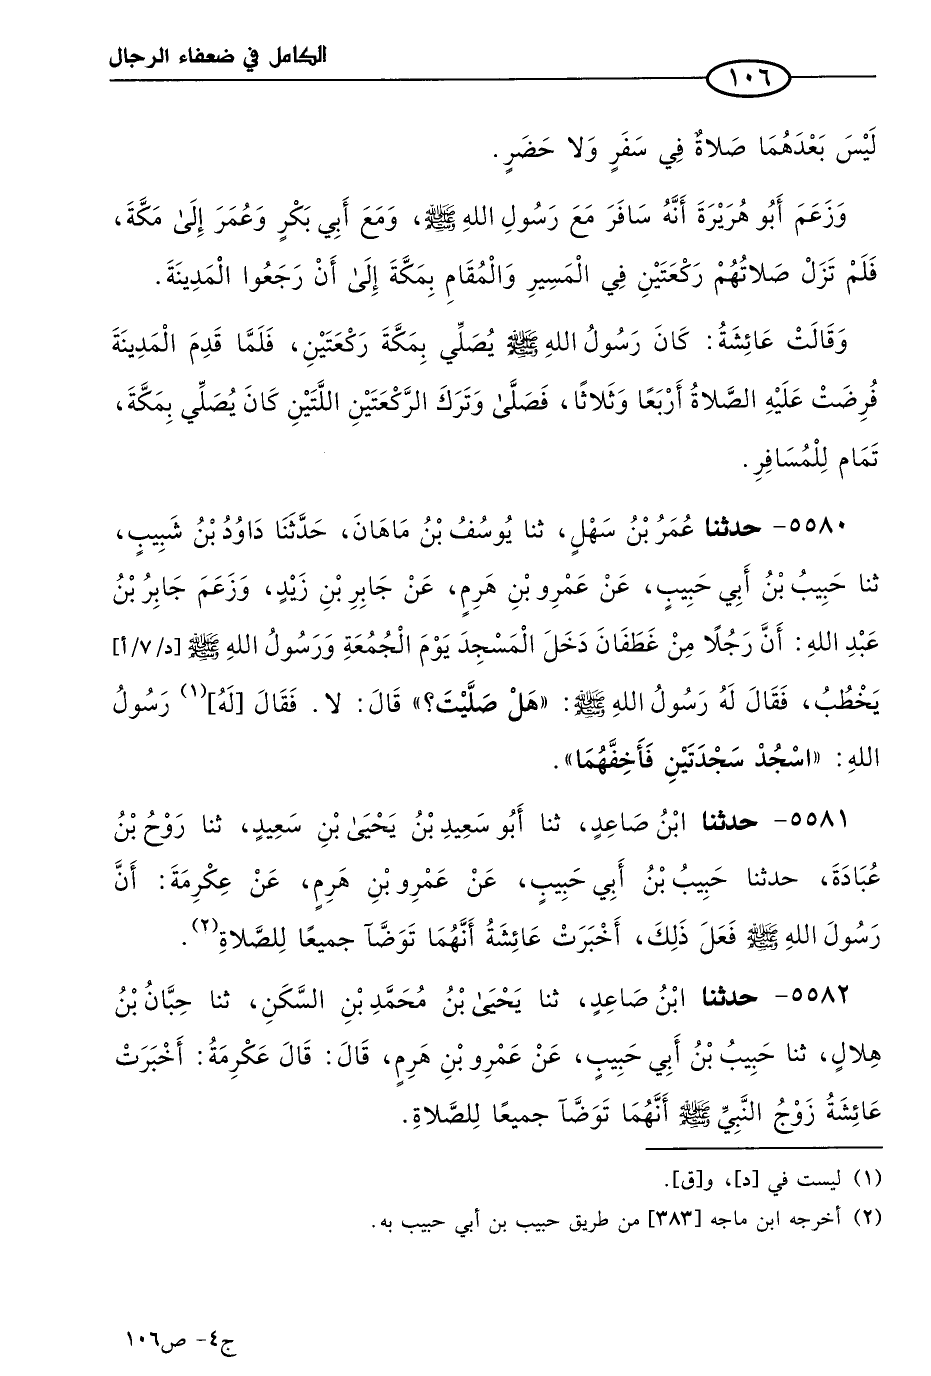 الكامل في ضعفاء الرجال
١٠٦
لَيْسَ بَعْدَهُمَا صَلاةٌ فِي سَفَرٍ وَلا حَضَرٍ.
وَزَعَمَ أَبُو هُرَيْرَةَ أَنَّهُ سَافَرَ مَعَ رَسُولِ اللهِ ﷺ، وَمَعَ أَبِي بَكْرٍ وَعُمَرَ إِلَىٰ مَكَّةَ،
فَلَمْ تَزَلْ صَلاتُهُمْ رَكْعَتَيْنِ فِي الْمَسِيرِ وَالْمُقَامِ بِمَكَّةَ إِلَىٰ أَنْ رَجَعُوا الْمَدِينَةَ.
وَقَالَتْ عَائِشَةُ: كَانَ رَسُولُ اللهِ ﷺ يُصَلِّي بِمَكَّةَ رَكْعَتَيْنِ، فَلَمَّا قَدِمَ الْمَدِينَةَ
فُرِضَتْ عَلَيْهِ الصَّلاةُ أَرْبَعًا وَثَلاثًا، فَصَلَّىٰ وَتَرَكَ الرَّكْعَتَيْنِ اللَّتَيْنِ كَانَ يُصَلِّي بِمَكَّةَ،
تَمَام لِلْمُسَافِرِ.
٥٥٨٠- حدثنا عُمَرُ بْنُ سَهْلٍ، ثنا يُوسُفُ بْنُ مَاهَانَ، حَدَّثَنَا دَاوُدُ بْنُ شَبِيبٍ،
ثنا حَبِيبُ بْنُ أَبِي حَبِيبٍ، عَنْ عَمْرِو بْنِ هَرِمٍ، عَنْ جَابِرِ بْنِ زَيْدٍ، وَزَعَمَ جَابِرُ بْنُ
عَبْدِ اللهِ: أَنَّ رَجُلًا مِنْ غَطَفَانَ دَخَلَ الْمَسْجِدَ يَوْمَ الْجُمُعَةِ وَرَسُولُ اللهِ ﷺ [د/٧/أ]
يَخْطُبُ، فَقَالَ لَهُ رَسُولُ اللهِ ﷺ: «هَلْ صَلَّيْتَ؟» قَالَ: لا. فَقَالَ [لَهُ](١) رَسُولُ
اللهِ: «اسْجُدْ سَجْدَتَيْنِ فَأَخِفَّهُمَا».
٥٥٨١- حدثنا ابْنُ صَاعِدٍ، ثنا أَبُو سَعِيدِ بْنُ يَحْيَىٰ بْنِ سَعِيدٍ، ثنا رَوْحُ بْنُ
عُبَادَةَ، حدثنا حَبِيبُ بْنُ أَبِي حَبِيبٍ، عَنْ عَمْرِو بْنِ هَرِمٍ، عَنْ عِكْرِمَةَ: أَنَّ
رَسُولَ اللهِ ﷺ فَعَلَ ذَلِكَ، أَخْبَرَتْ عَائِشَةُ أَنَّهُمَا تَوَضَّآ جميعًا لِلصَّلاةِ(٢).
٥٥٨٢- حدثنا ابْنُ صَاعِدٍ، ثنا يَحْيَىٰ بْنُ مُحَمَّدِ بْنِ السَّكَنِ، ثنا حِبَّانُ بْنُ
هِلالٍ، ثنا حَبِيبُ بْنُ أَبِي حَبِيبٍ، عَنْ عَمْرِو بْنِ هَرِمٍ، قَالَ: قَالَ عَكْرِمَةُ: أَخْبَرَتْ
عَائِشَةُ زَوْجُ النَّبِيِّ ﷺ أَنَّهُمَا تَوَضَّآ جميعًا لِلصَّلاةِ.
(١) ليست في [د]، و[ق].
(٢) أخرجه ابن ماجه [٣٨٣] من طريق حبيب بن أبي حبيب به.
ج٤- ص١٠٦